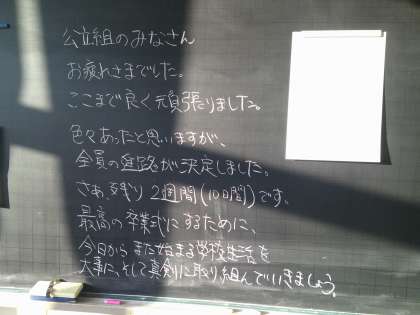 公立組のみなさん
お疲れさまでした。
ここまで良く頑張りました。
色々あったと思いますが、
全員の進路が決定しました。
さあ、残り2週間(10日間)です。
最高の卒業式にするために、
今日からまた始まる学校生活を
大事に、そして真剣に取り組んでいきましょう。